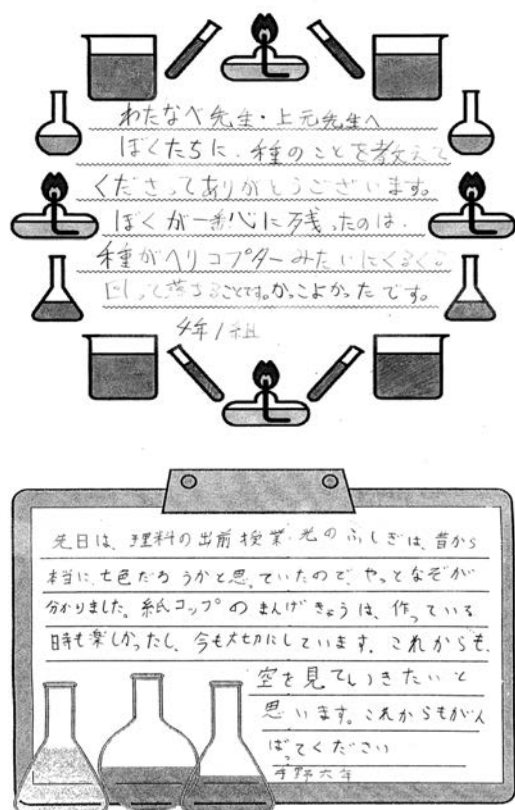 わたなべ先生・上元先生へ
ぼくたちに、種のことを教えて
くださってありがとうございます。
ぼくが一番心に残ったのは、
種がヘリコプターみたいにくるくる
回って落ちることです。かっこよかったです。
4年1組
先日は、理料の出前授業・光のふしぎは、昔から
本当に、七色だろうかと思っていたので、やっとなぞが
分かりました。紙コップのまんげきょうは、作っている
時も楽しかったし、今も大切にしています。これからも、
空を見ていきたいと
思います。これからもがん
ばってください
六年